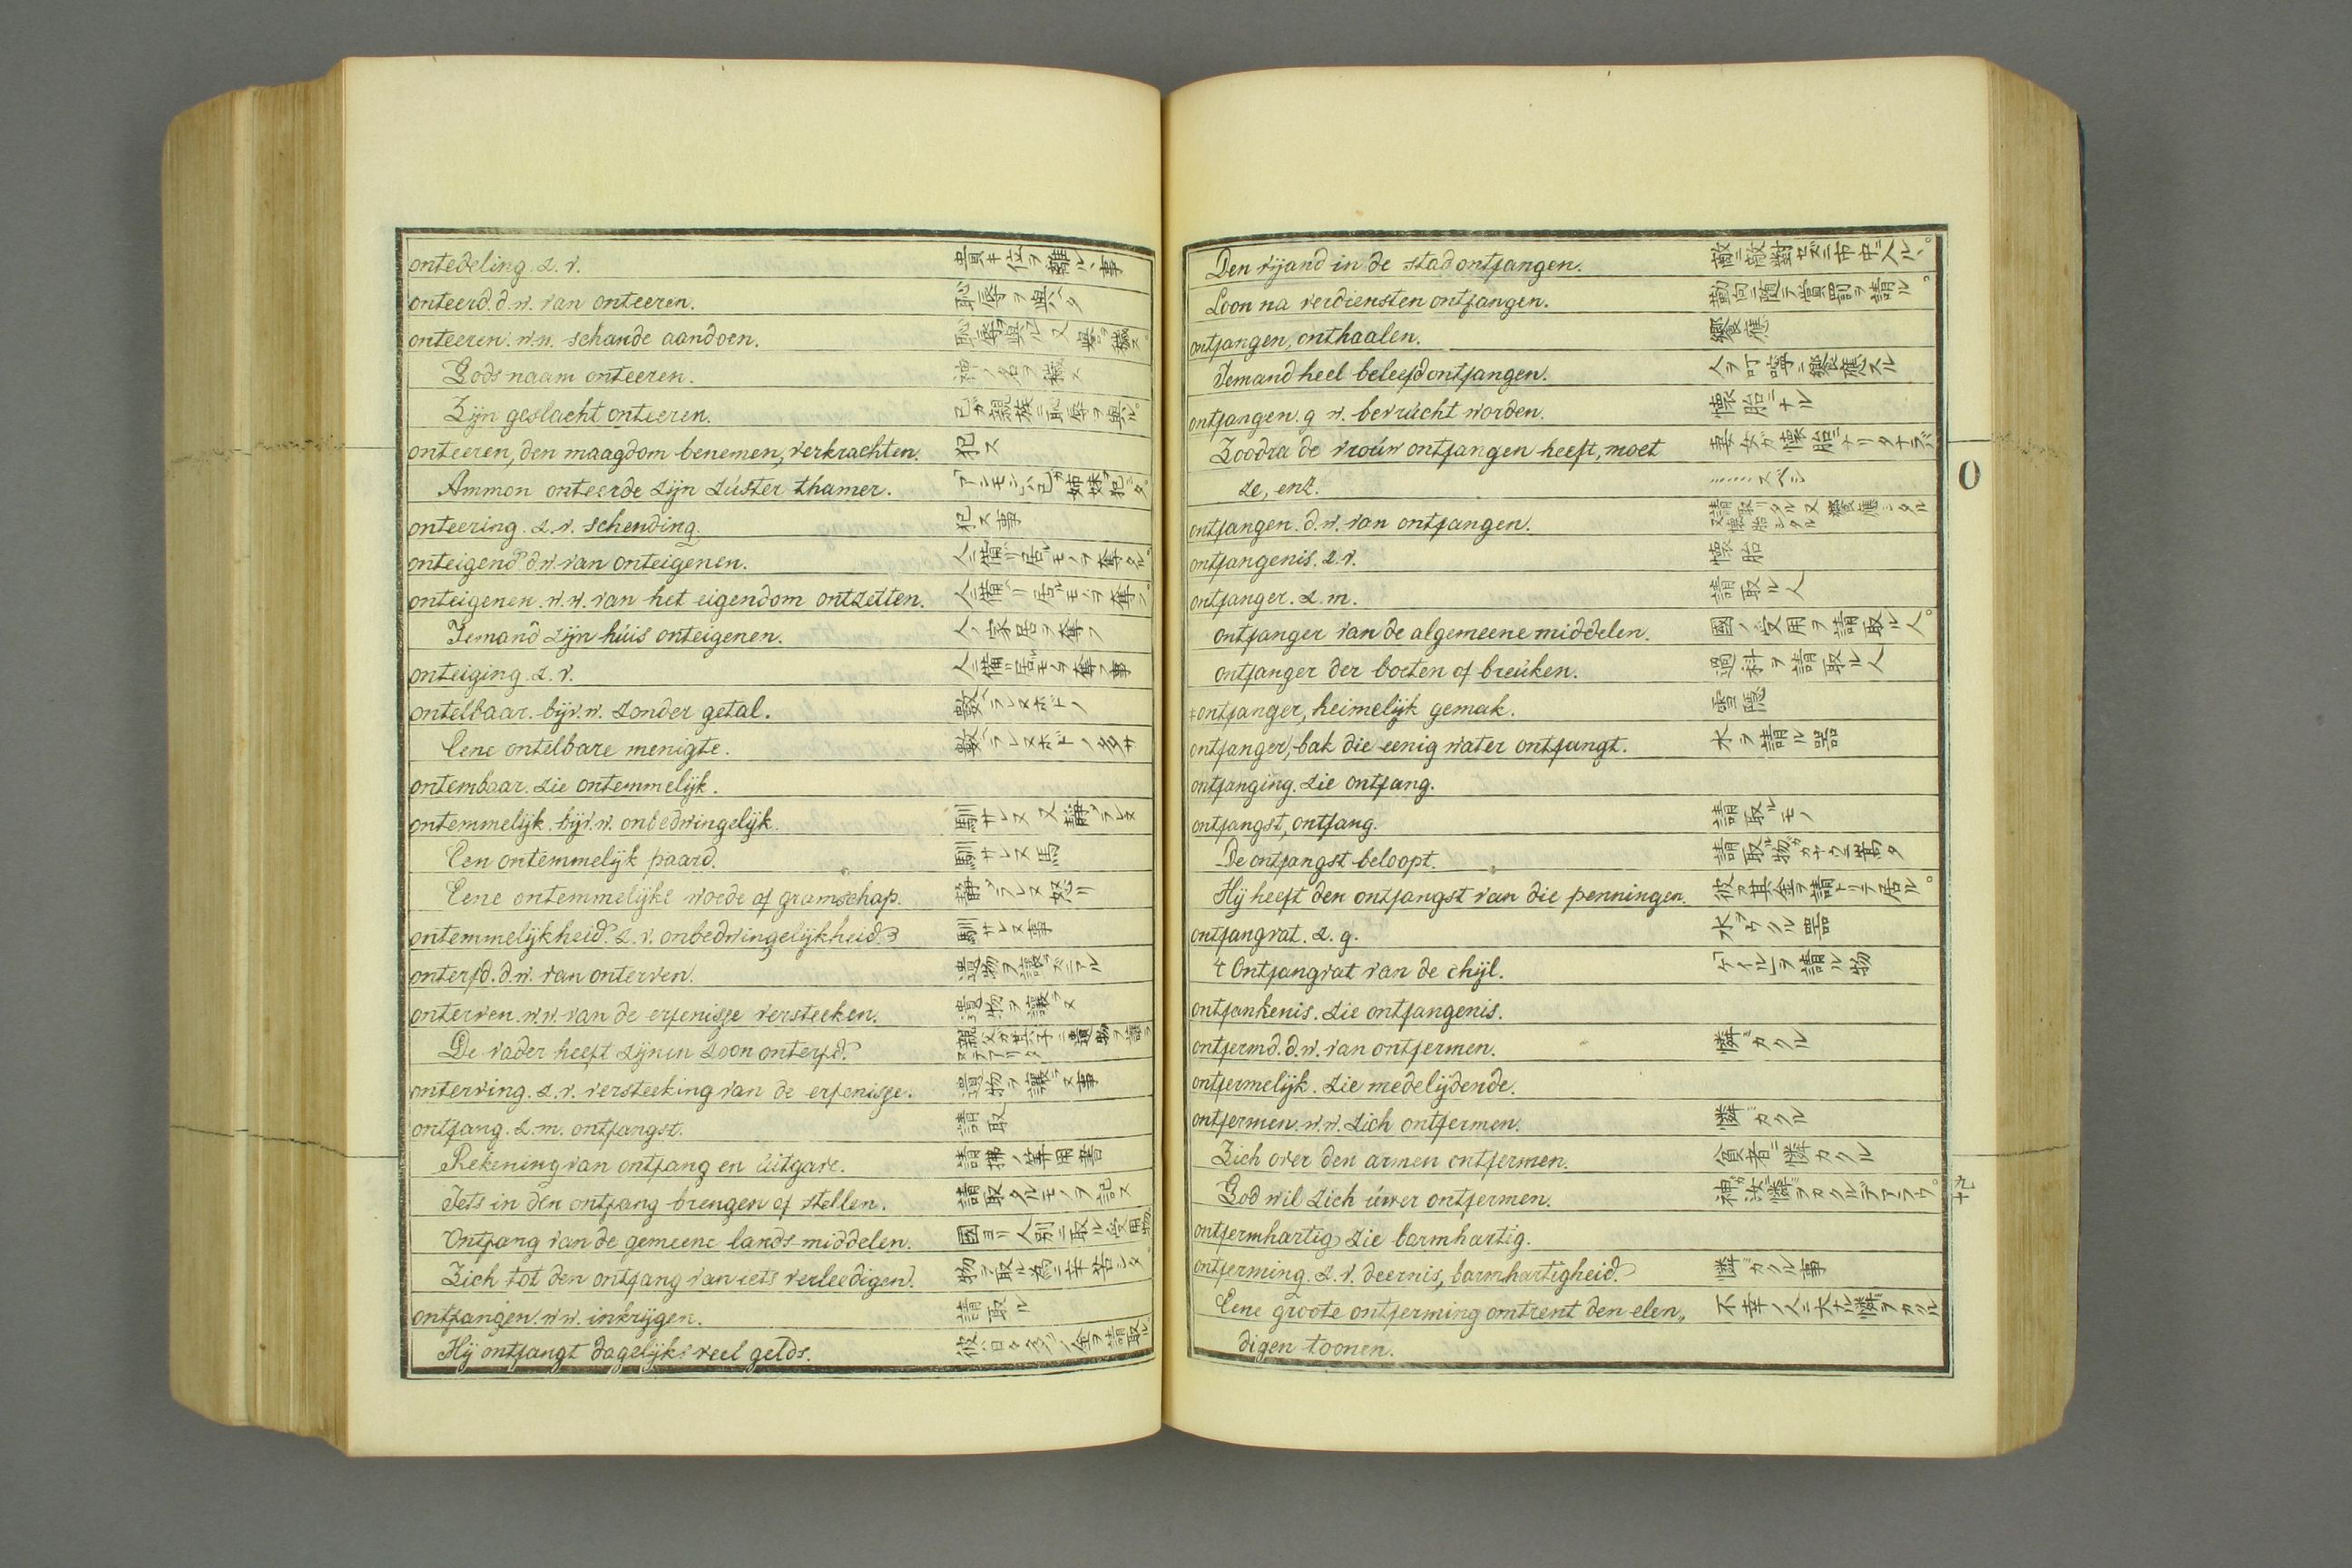 ontedeling. z. v. 貴キ位ヲ離ルヽ事
onteerd. d. w. van onteeren. 恥辱ヲ與ヘタ
onteeren. w. w. schande aandoen. 恥辱ヲ與ヘル又
Gods naam onteeren. 神ノ名ヲ穢ス
Zijn geslacht onteeren. 己ガ親族ニ恥辱ヲ與ル。
onteeren, den maagdom benemen, verkrachten. 犯ス
Ammon onteerde zijn zúster thamer. 「アンモン」ハ己ガ姉妹ヲ犯シタ。
onteering. z. v. schending. 犯ス事
onteigend. d. w. van onteigenen. 人ニ備リ居ルモノヲ奪タル。
onteigenen. w. w. van het eigendom ontzetten. 人ニ備リ居ルモノヲ奪フ。
Iemand zijn húis onteigenen. 人ノ家居ヲ奪フ
onteiging. z. v. 人ニ備リ居ルモノヲ奪フ事
ontelbaar. bijv. w. zonder getal. 數ヘラレヌホドノ
Eene ontelbare menigte. 數ヘラレヌホドノ多サ
ontembaar. zie ontemmelijk.
ontemmelijk. bijv. w. onbedwingelijk. 馴サレヌ又静メラレヌ
Een ontemmelijk paard. 馴サレヌ馬
Eene ontemmelijke woede of gramschap. 静メラレヌ怒リ
ontemmelijkheid. z. v. onbedwingelijkheid. 馴サレヌ事
onterfd. d. w. van onterven. 遺物ヲ譲ラズニアル
onterven. w. w. van de erfenisse versteeken. 遺物ヲ譲ラヌ
De vader heeft zijnen zoon onterfd. 親父ガ其子ニ遺物ヲ譲ラズニアリタ
onterving. z. v. versteeking van de erfenisse. 遺物ヲ譲ラヌ事
ontfang. z. m. ontfangst. 請取
Rekening van ontfang en úitgave. 請拂ノ算用書
Iets in den ontfang brengen of stellen. 請取タルモノヲ記ス
Ontfang van de gemeene lands middelen. 國ヨリ人別ニ取ル受用物。
Zich tot den ontfang van iets verleedigen. 物ヲ取ル為ニ辛苦シタ。
ontfangen. w. w. inkrijgen. 請取ル
Hij ontfangt dagelijks veel gelds. 彼ハ日々多クノ金ヲ請取ル
Den vijand in de stad ontfangen. 敵ニ敵對セズニ市中ニ入ルヽ。
Loon na verdiensten ontfangen. 勤向ニ随テ賞罰ヲ請ル。
ontfangen, onthaalen. 饗應
Iemand heel beleefd ontfangen. 人ヲ叮嚀ニ饗應スル
ontfangen. g. w. bevrúcht worden. 懐胎ニナル
Zoodra de vroúw ontfangen heeft, moet 妻女ガ懐胎ニナリタナラバ
ze, enz. ……スベシ
ontfangen. d. w. van ontfangen. 請取リタル又饗應シタル又懐胎シタル
ontfangenis. z. v. 懐胎
ontfanger. z. m. 請取ル人
ontfanger van de algemeene middelen. 國ノ受用ヲ請取ル人。
ontfanger der boeten of breúken. 過料ヲ請取ル人
‡ontfanger, heimelijk gemak. 雪隠
ontfanger, bak die eenig water ontfangt. 水ヲ請ル器
ontfanging. zie ontfang.
ontfangst, ontfang. 請取ルモノ
De ontfangst beloopt. 請取物ガカヤウニ嵩タ
Hij heeft den ontfangst van die penningen. 彼ガ其金ヲ請トリテ居ル。
ontfangvat. z. g. 水ヲウクル器
‡ Ontfangvat van de chijl. 「ゲイル」ヲ請ル物
ontfankenis. zie ontfangenis.
ontfermd. d. w. van ontfermen. 憐ヲカクル
ontfermelijk. zie medelijdende.
ontfermen. w. w. zich ontfermen. 憐ヲカクル
Zich over den armen ontfermen. 貧者ニ憐ヲカクル
God wil zich úwer ontfermen. 神ガ汝ニ憐ヲカクルデアラウ。
ontfermhartig zie barmhartig.
ontferming. z. v. deernis, barmhartigheid. 憐ヲカクル事
Eene groote ontferming omtrent den elen„ 不幸ノ人ニ大ナル憐ヲカクル
digen toonen.
O
九十